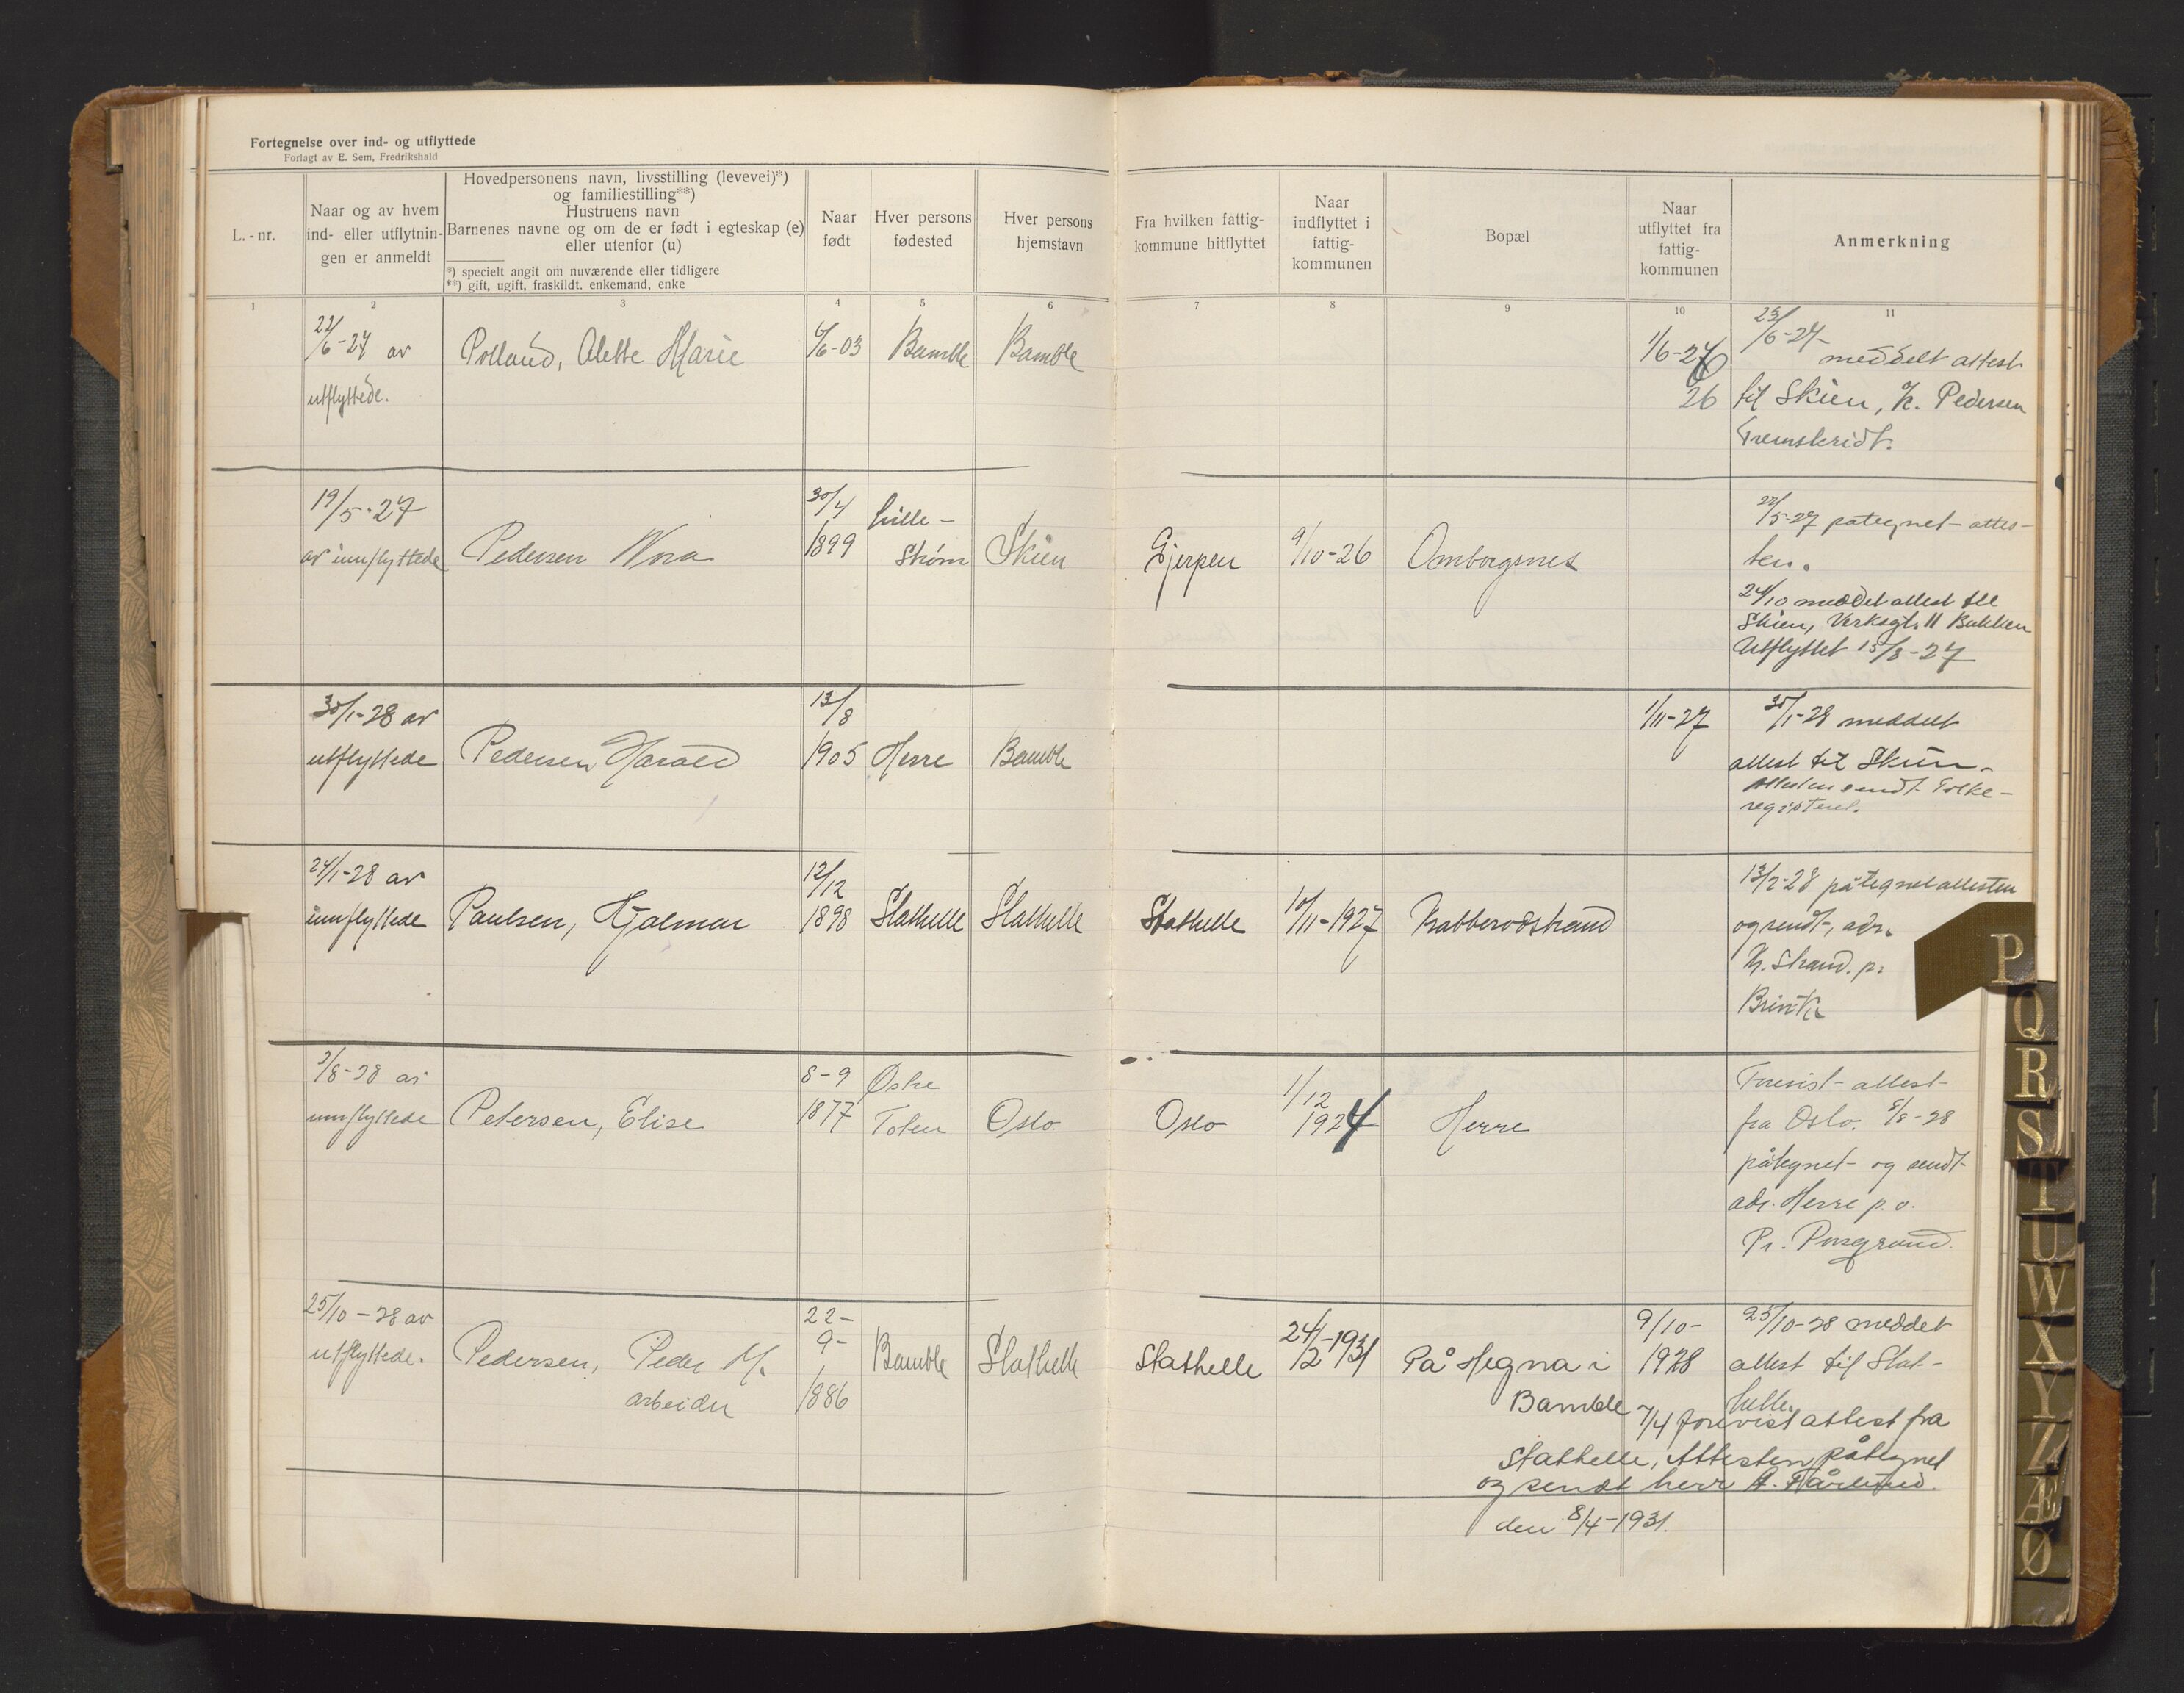 Fortegnelse over ind- og utflyttede
Forlagt av E. Sem, Fredrikshald
L.-nr.
Naar og av hvem
ind- eller utflytnin-
gen er anmeldt
Hovedpersonens navn, livsstilling (levevei)*)
og familiestilling**)
Hustruens navn
Barnenes navne og om de er født i egteskap (e)
eller utenfor (u)
*) specielt angit om nuværende eller tidligere
**) gift, ugift, fraskildt. enkemand, enke
Naar
født
Hver persons
fødested
Hver persons
hjemstavn
Fra hvilken fattig-
kommune hitflyttet
Naar
indflyttet i
fattig-
kommunen
Bopæl
Naar
utflyttet fra
fattig-
kommunen
Anmerkning
1 2 3 4 5 6 7 8 9 10 11
22/6-27 av
utflyttede.
Polland, Alette Marie
6/6-03
Bamble
Bamble
1/6-26
26
23/6-27
meddelt attest
til Skien, Pedersen
Fremskridt.
19/5-27
av innflyttede
Pedersen Nora
30/4
1899
Lille-
strøm
Skien
Gjerpen
9/10-26
Omborgsnes
27/5-27 pategnet attes-
ten.
24/10 meddet attest til
Skien, Verksgt. 11 Bakken
Utflyttet 15/8-27
30/1-28 av
utflyttede
Pedersen Harald
13/8
1905
Herre
Bamble
1/11-27
30/1-28 meddelt
attest til Skien-
Attesten sendt Folke-
registeret.
24/1-28 av
innflyttede
Paulsen, Hjalmar
12/12
1898
Stathelle
Stathelle
Stathelle
10/11-1927
Krabberødstrand
13/2-28 påtegnet attesten
og sendt, adr.
Kr. Strand. p.
Brevik
2/8-28 av
innflyttede
Petersen, Elise
8-9
1877
Østre
Toten
Oslo
Oslo
1/12
1924
Herre
Forevist attest
fra Oslo. 8/8-28
påtegnet og sendt
adr. Herre p.o.
Pr. Porsgrund.
25/10-28 av
utflyttede.
Pedersen, Peder M.
arbeider
22-
9-
1886
Bamble
Stathelle
Stathelle
24/2-1931
På Hegna i
Bamble
9/10-
1928
25/10-28 meddet
attest til Stat-
helle.
7/4 forevist attest fra
Stathelle, Attesten påtegnet
og sendt herr A. Fårlund.
den 8/4-1931.
P
Q
R
S
T
U
W
X
Y
Z
Æ
Ø